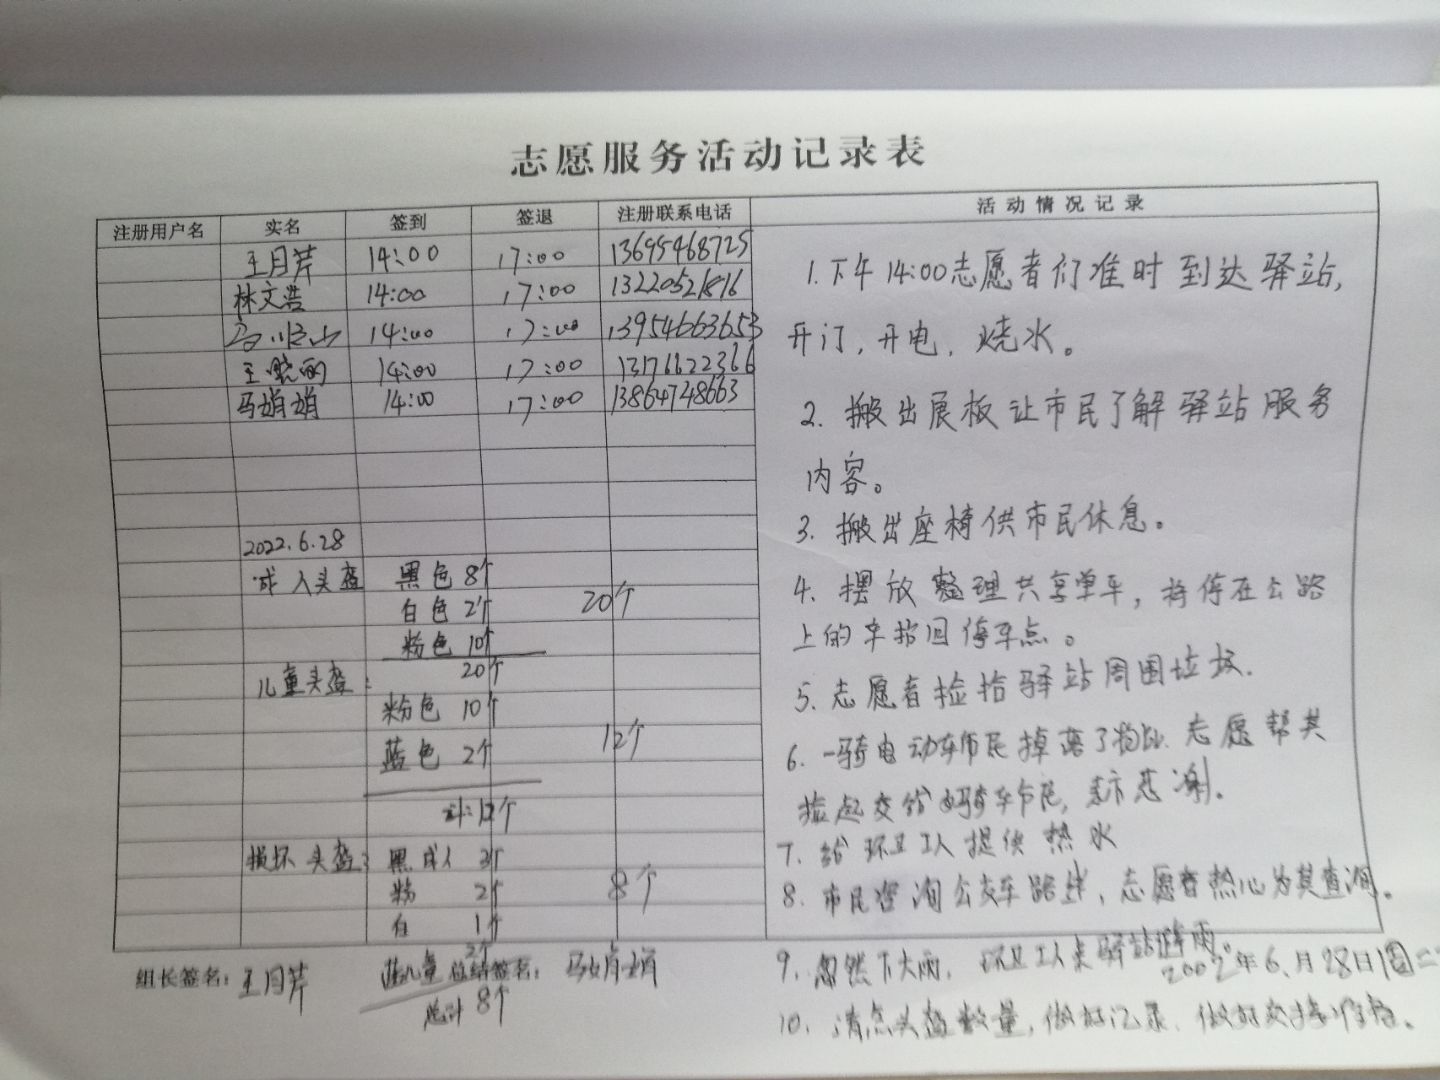 志愿服务活动记录表
注册用户名 实名 签到 签退 注册联系电话 活动情况记录
王月芹 14:00 17:00 13695468725
林文浩 14:00 17:00 13220521816
14:00 17:00 13954663653
王晓丽 14:00 17:00 13176622366
马娟娟 14:00 17:00 13864748663
2022.6.28
成人头盔 黑色 8个
白色 2个 20个
粉色 10个
20个
儿童头盔:
粉色 10个
蓝色 2个 12个
计:12个
损坏头盔: 黑成人 3个
粉 2个 8个
白 1个
蓝儿童 2个
总计 8个
组长签名: 王月芹 总结签名: 马娟娟
1.下午14:00志愿者们准时到达驿站,
开门,开电,烧水。
2.搬出展板让市民了解驿站服务
内容。
3.搬出座椅供市民休息。
4.摆放整理共享单车,将停在公路
上的车抬回停车点。
5.志愿者捡拾驿站周围垃圾.
6.一骑电动车市民掉落了物品.志愿帮其
捡起交给骑车市民,表示感谢。
7.给环卫工人提供热水
8.市民咨询公交车路线,志愿者热心为其查询。
9.忽然下大雨,环卫工人来驿站避雨。
2002年6月28日周二
10.清点头盔数量,做好记录.做好交接准备。